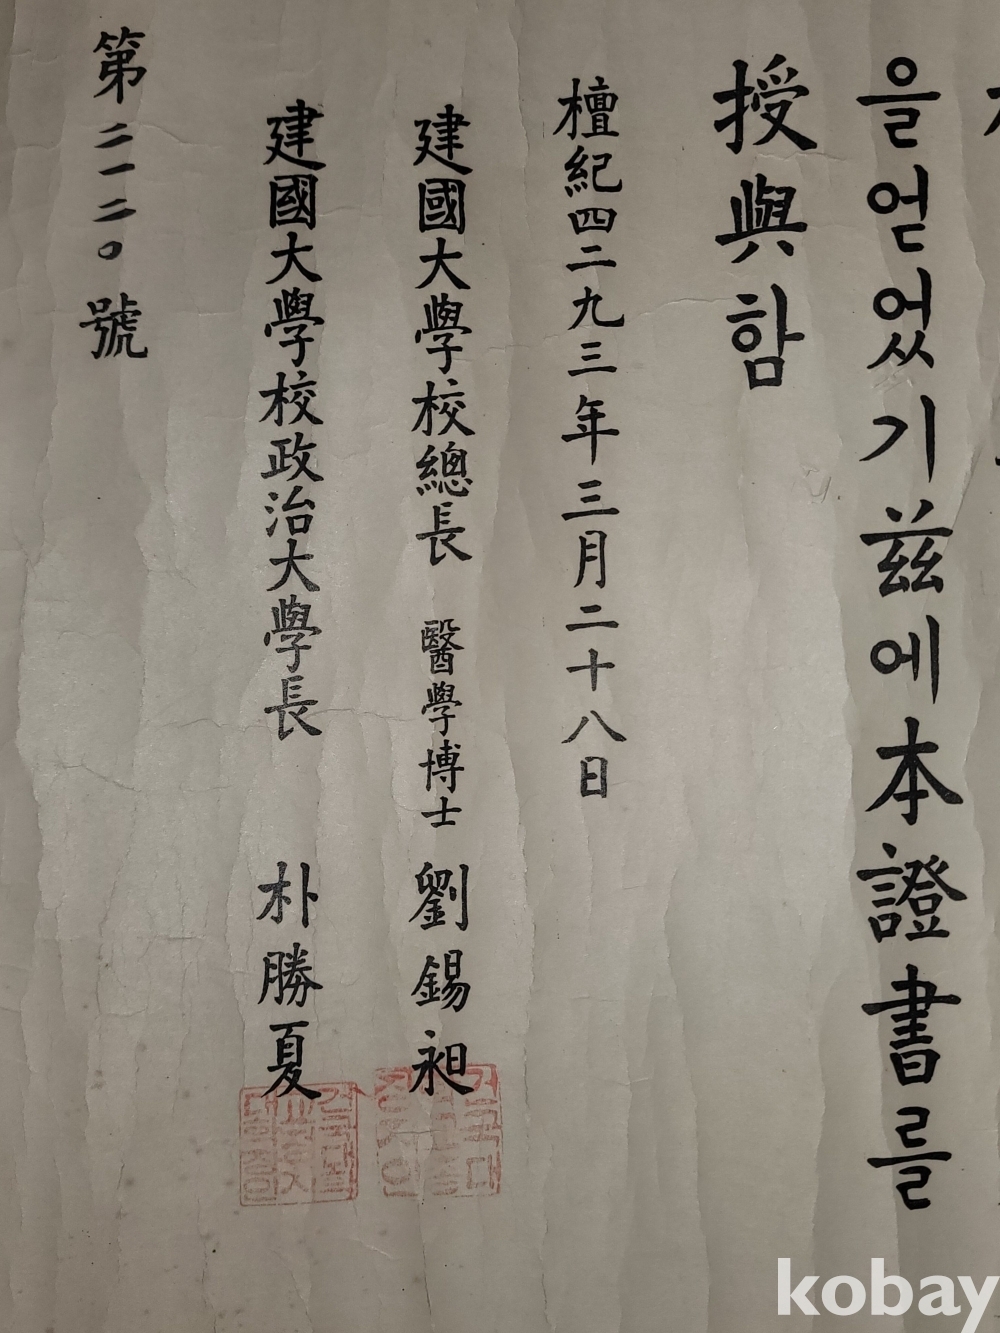 을얻었기玆에本證書를
授與함
檀紀四二九三年三月二十八日
建國大學校總長 醫學博士 劉錫昶
建國大學校政治大學長 朴勝夏
第二一二〇號
kobay